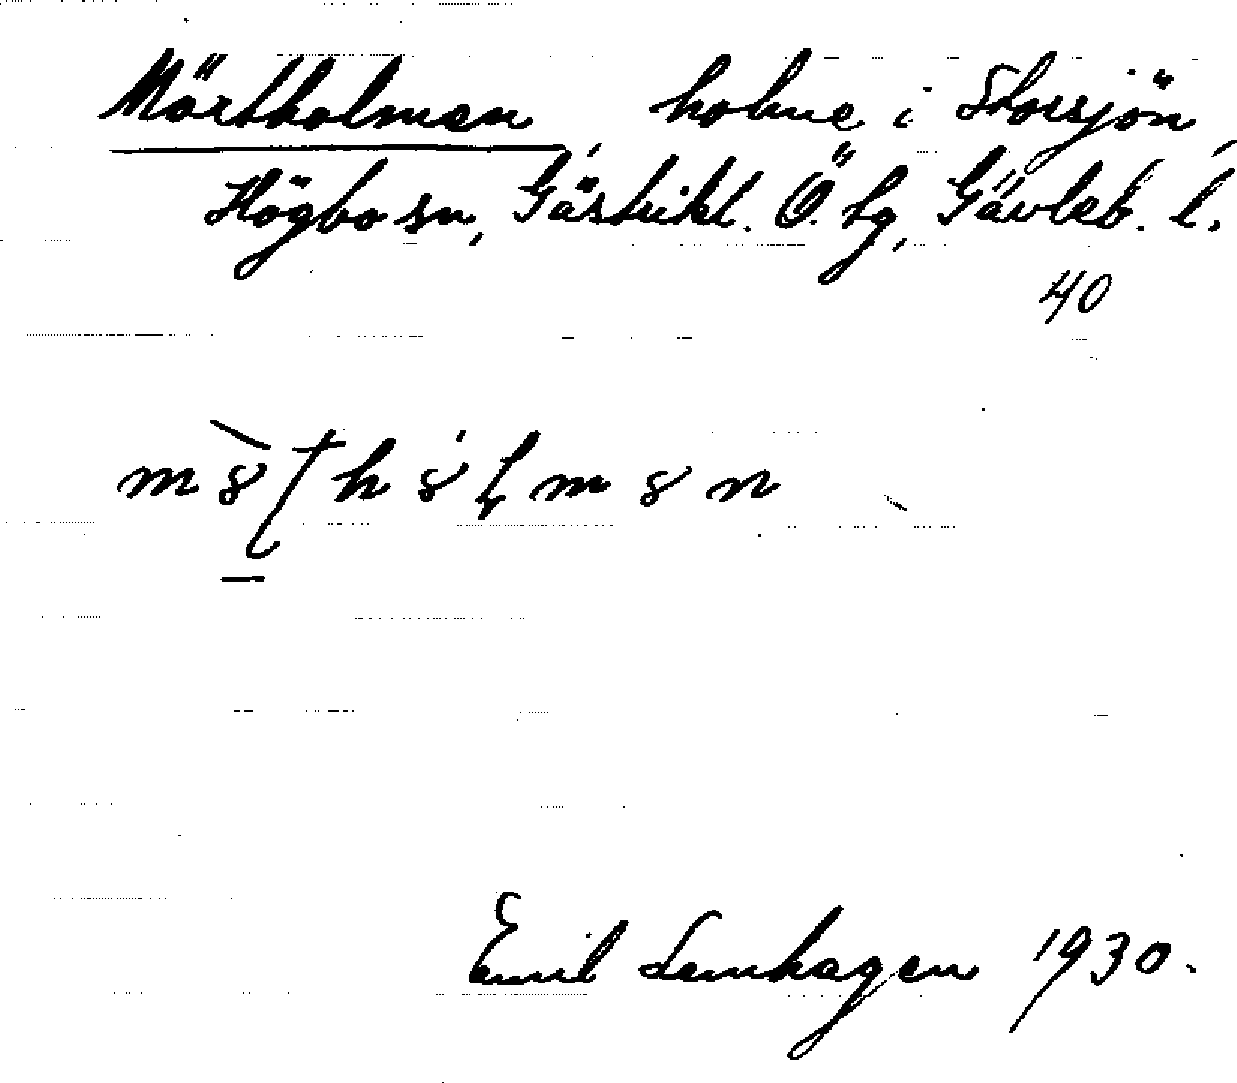 Mörtholmen, holme i Storsjön,
Högbo sn, Gästrikl. Ö. hg, Gävleb. l.
40
Emil Lenhagen 1930.